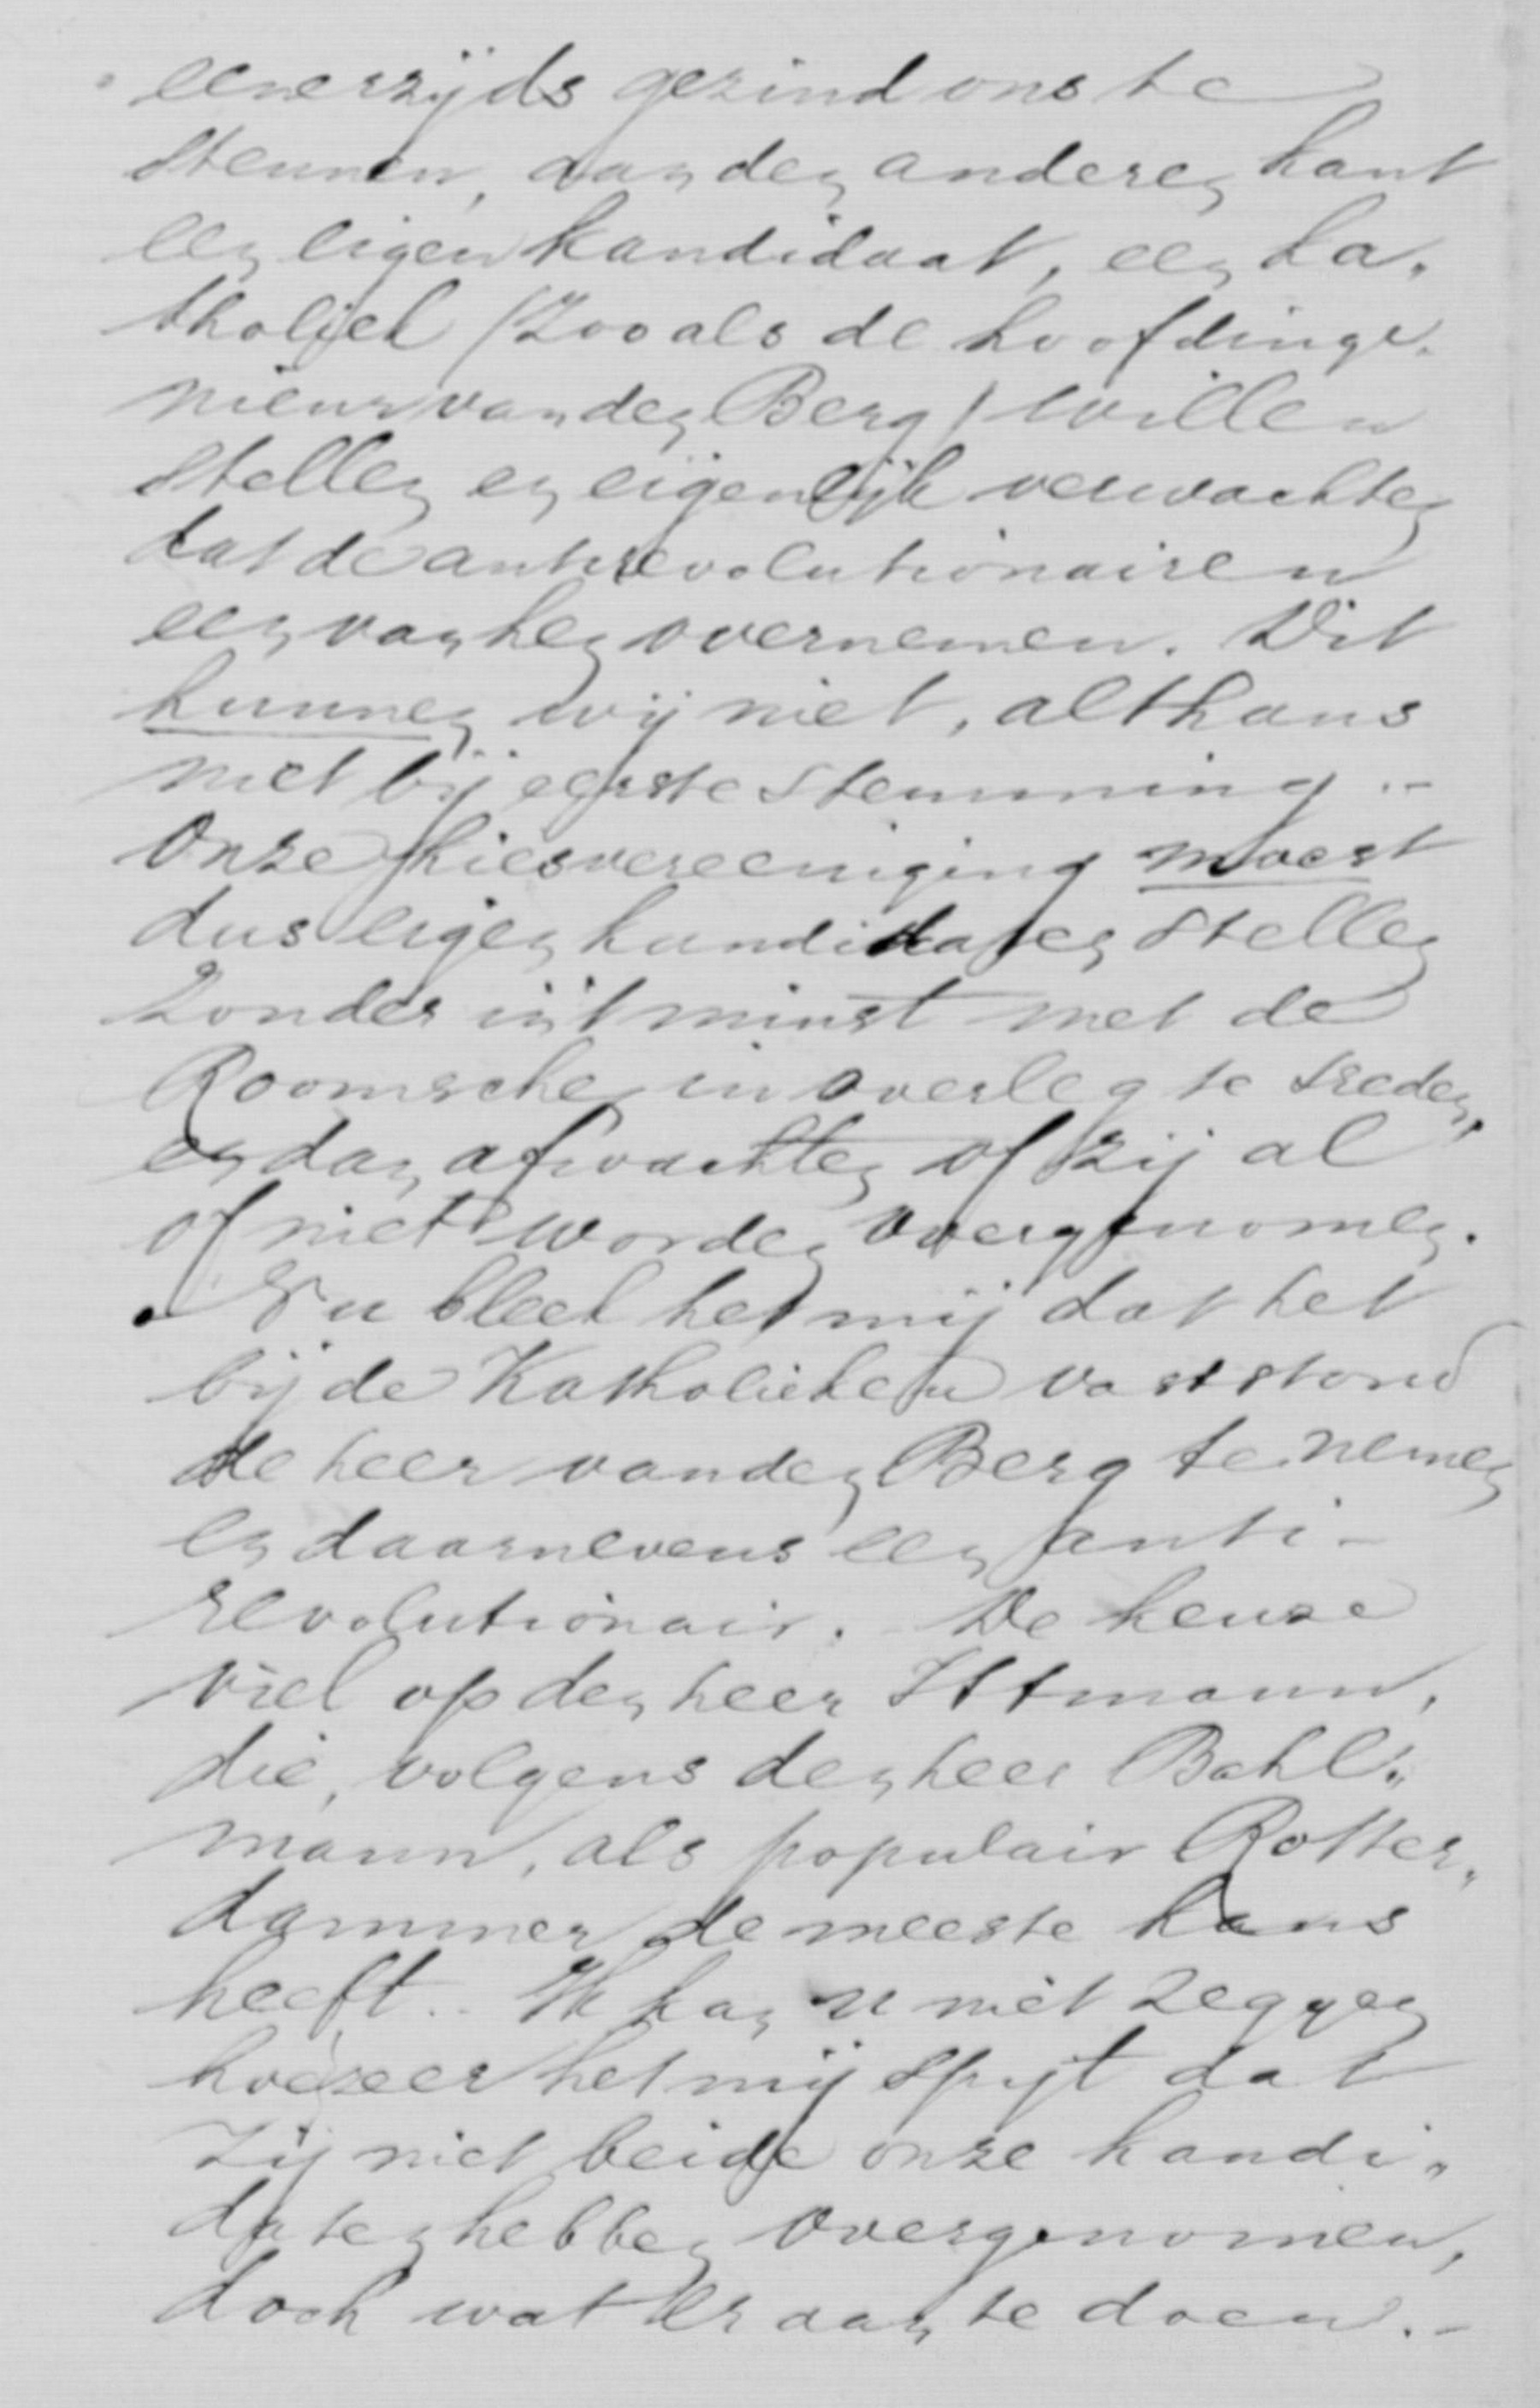 eenerzijds gezind ons te
steunen, aan den anderen kant
een eigen kandidaat, een ka„
tholiek (zooals de hoofdinge„
nieur van den Berg) willen
stellen en eigenlijk verwachten
dat de antirevolutionairen
een van hen overnemen. Dit
kunnen wij niet, althans
niet bij eerste stemming.-
Onze kiesvereeniging moest
dus eigen kandidaten stellen
zonder in 't minst met de
Roomschen in overleg te treden,
en dan afwachten of zij al
of niet worden overgenomen.
Nu bleek het mij dat het
bij de Katholieken vaststond
de heer van den Berg te nemen
en daarnevens een anti-
revolutionair. De keuze
viel op den heer Ittmann,
die, volgens den heer Bahl„
mann, als populair Rotter„
dammer de meeste kans
heeft.. Ik kan u niet zeggen
hoezeer het mij spijt dat
zij niet beide onze kandi„
daten hebben overgenomen,
doch wat er aan te doen.-